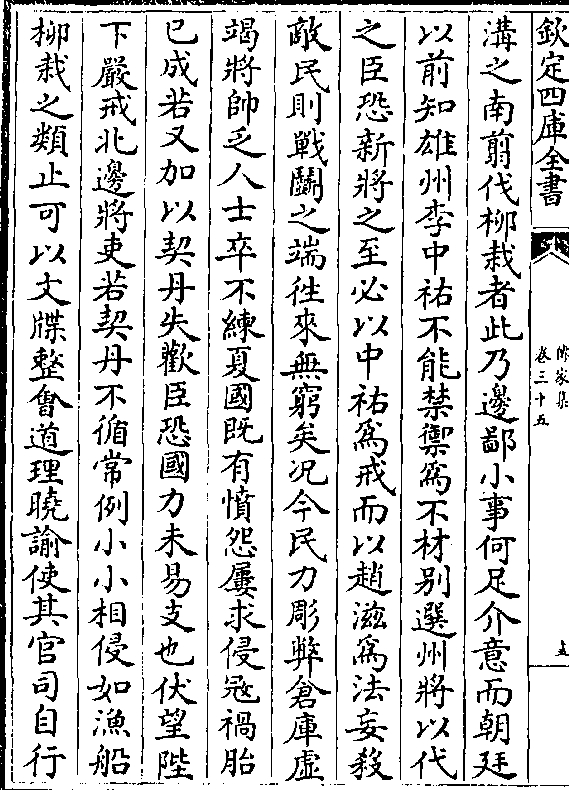 欽定四庫全書
傳家集
卷三十五
五
溝之南剪伐柳栽者此乃邊鄙小事何足介意而朝廷
以前知雄州李中祐不能禁禦為不材别選州將以代
之臣恐新將之至必以中祐為戒而以趙滋為法妄殺
敵民則戰鬭之端徃來無窮矣况今民力彫弊倉庫虚
竭將帥乏人士卒不練夏國既有憤怨屢求侵冦禍胎
已成若又加以契丹失歡臣恐國力未易支也伏望陛
下嚴戒北邊將吏若契丹不循常例小小相侵如漁船
柳栽之類止可以文牒整會道理曉諭使其官司自行